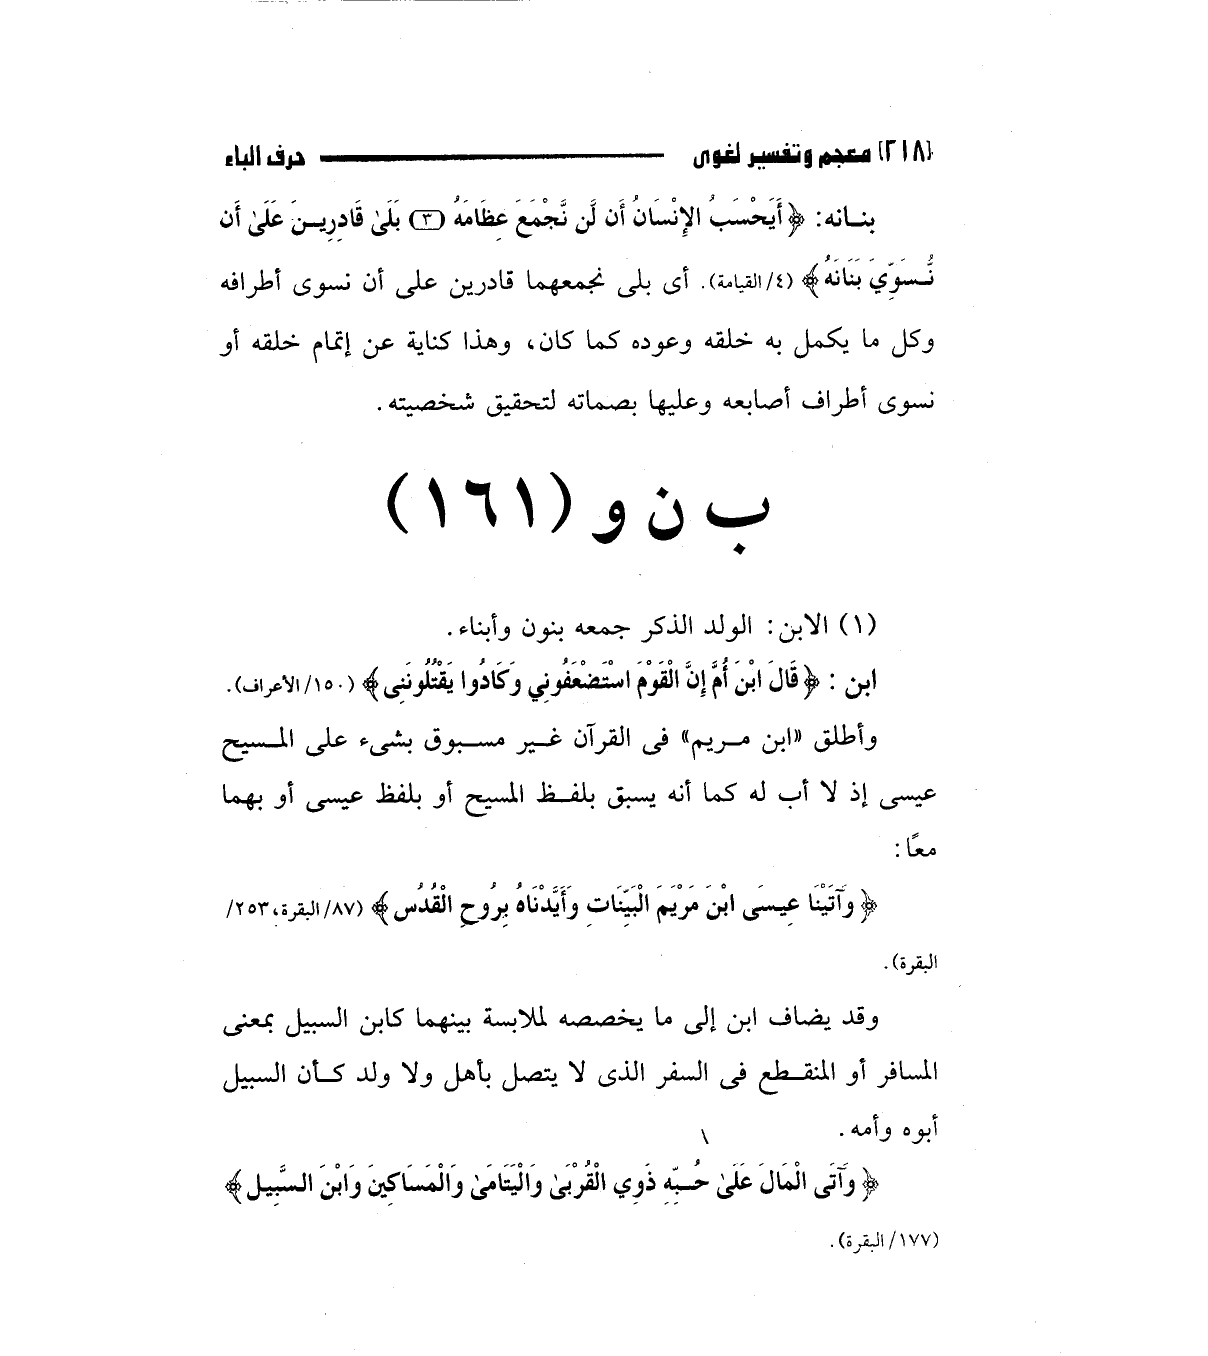 (٢١٨) معجم وتفسير لغوى حرف الباء
بنـانه: ﴿ أَيَحْسَبُ الإِنْسَانُ أَن لَّن نَّجْمَعَ عِظَامَهُ (٣) بَلَىٰ قَادِرِيـنَ عَلَىٰ أَن
نُّـسَوِّيَ بَنَانَهُ ﴾ (٤/ القيامة). أى بلى نجمعهما قادرين على أن نسوى أطرافه
وكل ما يكمل به خلقه وعوده كما كان، وهذا كناية عن إتمام خلقه أو
نسوى أطراف أصابعه وعليها بصماته لتحقيق شخصيته.
ب ن و (١٦١)
(١) الابن: الولد الذكر جمعه بنون وأبناء.
ابن : ﴿ قَالَ ابْنَ أُمَّ إِنَّ الْقَوْمَ اسْتَضْعَفُونِي وَكَادُوا يَقْتُلُونَنِى ﴾ (١٥٠/ الأعراف).
وأطلق «ابن مـريم» فى القرآن غـير مسـبوق بشىء على المـسيح
عيسى إذ لا أب له كما أنه يسبق بلفـظ المسيح أو بلفظ عيسى أو بهما
معًا:
﴿ وَآتَيْنَا عِيسَى ابْنَ مَرْيَمَ الْبَيِّنَاتِ وَأَيَّدْنَاهُ بِرُوحِ الْقُدُسِ ﴾ (٨٧/ البقرة، ٢٥٣/
البقرة).
وقد يضاف ابن إلى ما يخصصه لملابسة بينهما كابن السبيل بمعنى
المسافر أو المنقـطع فى السفر الذى لا يتصل بأهل ولا ولد كـأن السبيل
أبوه وأمه.
﴿ وَآتَى الْمَالَ عَلَىٰ حُـبِّهِ ذَوِي الْقُرْبَىٰ وَالْيَتَامَىٰ وَالْمَسَاكِينَ وَابْنَ السَّبِيلِ ﴾
(١٧٧/ البقرة).